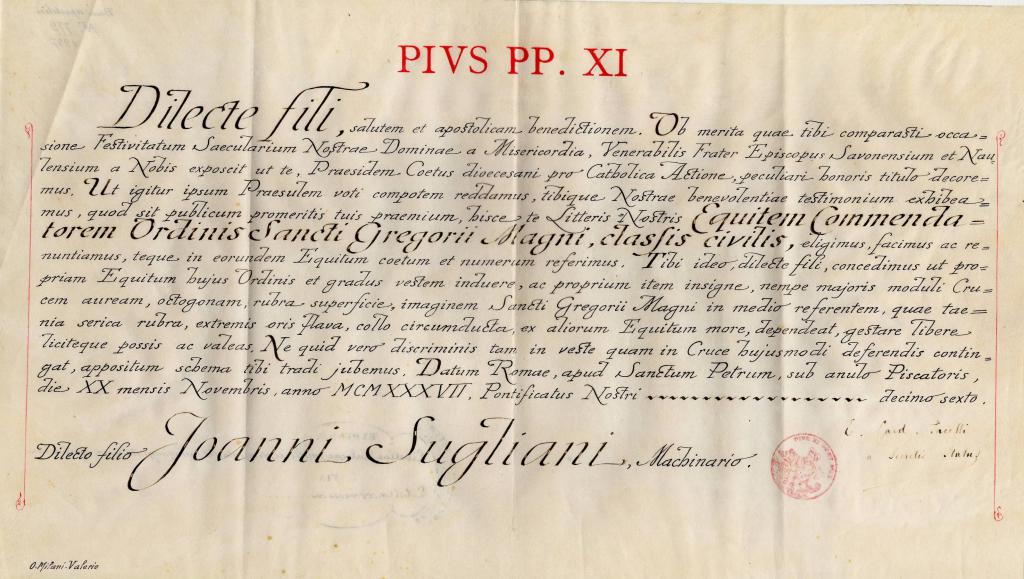 PIVS PP. XI
Dilecte fili, salutem et apostolicam benedictionem. Ob merita quae tibi comparasti occa=
sione Festivitatum Saecularium Nostrae Dominae a Misericordia, Venerabilis Frater Episcopus Savonensium et Nau
lensium a Nobis exposcit ut te, Praesidem Coetus dioecesani pro Catholica Actione, peculiari honoris titulo decore=
mus. Ut igitur ipsum Praesulem voti compotem reddamus, tibique Nostrae benevolentiae testimonium exhibea=
mus, quod sit publicum promeritis tuis praemium, hisce te Litteris Nostris Equitem Commenda=
torem Ordinis Sancti Gregorii Magni, classis civilis, eligimus, facimus ac re=
nuntiamus, teque in eorundem Equitum coetum et numerum referimus. Tibi ideo, dilecte fili, concedimus ut pro=
priam Equitum hujus Ordinis et gradus vestem induere, ac proprium item insigne, nempe majoris moduli Cru=
cem auream, octogonam, rubra superficie, imaginem Sancti Gregorii Magni in medio referentem, quae tae=
nia serica rubra, extremis oris flava, collo circumducta, ex aliorum Equitum more, dependeat, gestare libere
liciteque possis ac valeas. Ne quid vero discriminis tam in veste quam in Cruce hujusmodi deferendis contin=
gat, appositum schema tibi tradi jubemus. Datum Romae, apud Sanctum Petrum, sub anulo Piscatoris,
die XX mensis Novembris, anno MCMXXXVII, Pontificatus Nostri decimo sexto.
E. Card. Pacelli
a Secretis Status
Dilecto filio Joanni Sugliani, Machinario.
O. Milani-Valerio